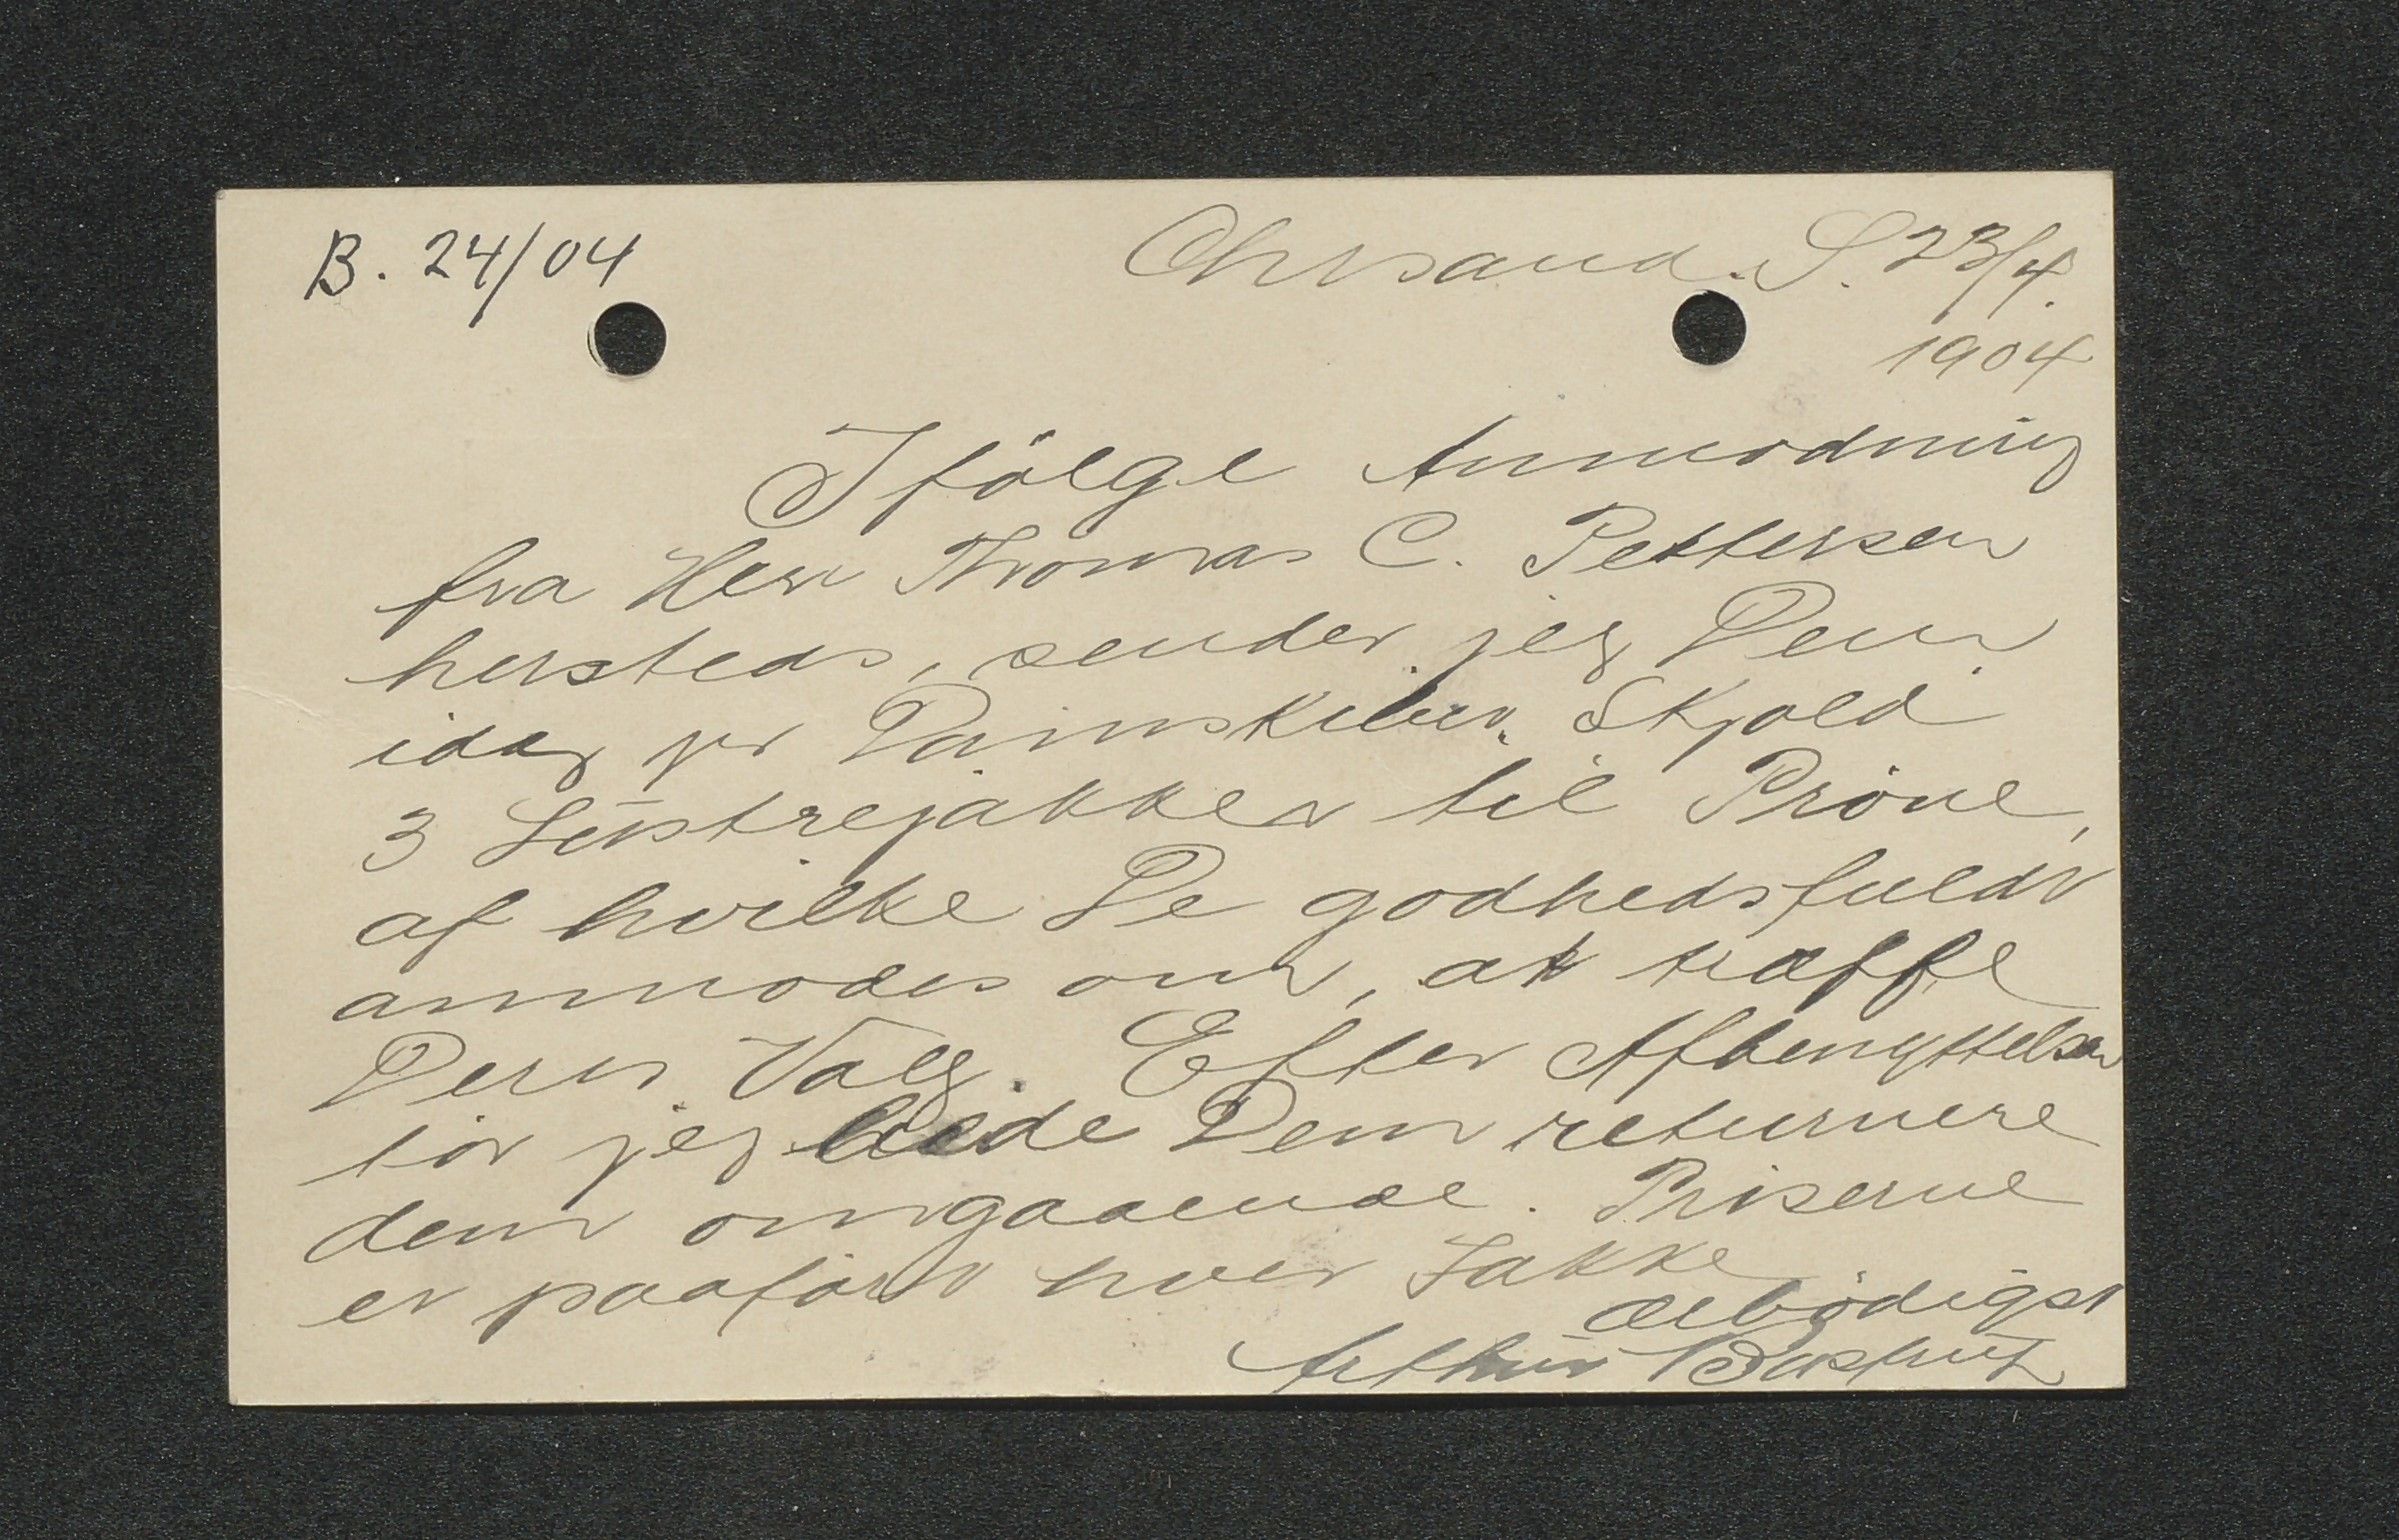 B. 24/04
Chrsand. S. 23/4.
1904
Ifölge Anmodning
fra Herr Thomas C. Pettersen
hersteds, sender jeg Dem
idag pr Dampskiber. Skjold
3 Lüstrejakker til Pröve,
af hvilke De godhedsfuldt
anmodes om, at træffe
Deres Valg. Efter Afbenyttelsen
tör jeg bede Dem returnere
dem omgaaende. Priserne
er paaført hver Jakke
ærbödigst
Arthur